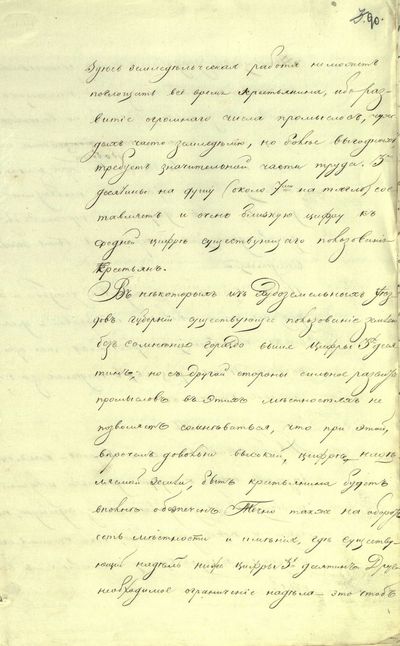 390.
Здѣсь земледѣльческая работа не можетъ
поглощать все время крестьянина, ибо раз
витіе огромнаго числа промысловъ, чуж
дыхъ часто земледѣлію, но болѣе выгодныхъ
требуетъ значительной части труда. 3хъ
десятины на душу (около 7ми на тягло) сос
тавляетъ и очень близкую цифру къ
средней цифрѣ существующаго пользованія
крестьянъ.
Въ нѣкоторыхъ изъ уѣз
довъ губерніи существующее пользованіе землею
безъ сомнѣнія гораздо выше цифры 3хъ деся
тинъ, но съ другой стороны сильное развитіе
промысловъ въ этихъ мѣстностяхъ не
позволяетъ сомнѣваться, что при этой,
впрочемъ довольно высокой, цифрѣ,
бытъ крестьянина будетъ
вполнѣ обезпеченъ. Точно также на оборотъ
есть мѣстности и имѣнія, гдѣ существу
ющій надѣлъ ниже цифры 3хъ десятинъ. Другое
необходимое ограниченіе надѣла – это чтобъ